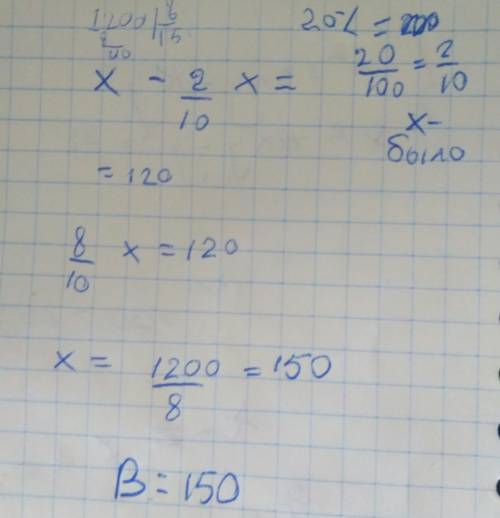 1200 | 8
8 | 15
40
20% =
20/100 = 2/10
x - 2/10 x =
x -
было
= 120
8/10 x = 120
x = 1200/8 = 150
B = 150